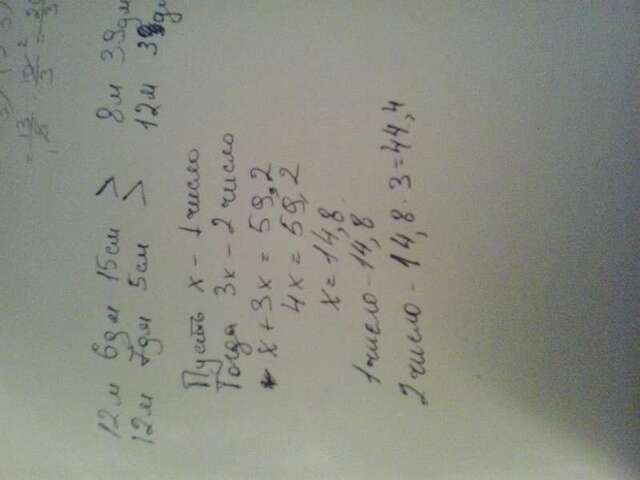 12м 6дм 15см > 8м 39дм
12м 7дм 5см > 12м 39дм
Пусть x - 1 число
Тогда 3x - 2 число
x + 3x = 59,2
4x = 59,2
x = 14,8.
1 число - 14,8
2 число - 14,8 · 3 = 44,4